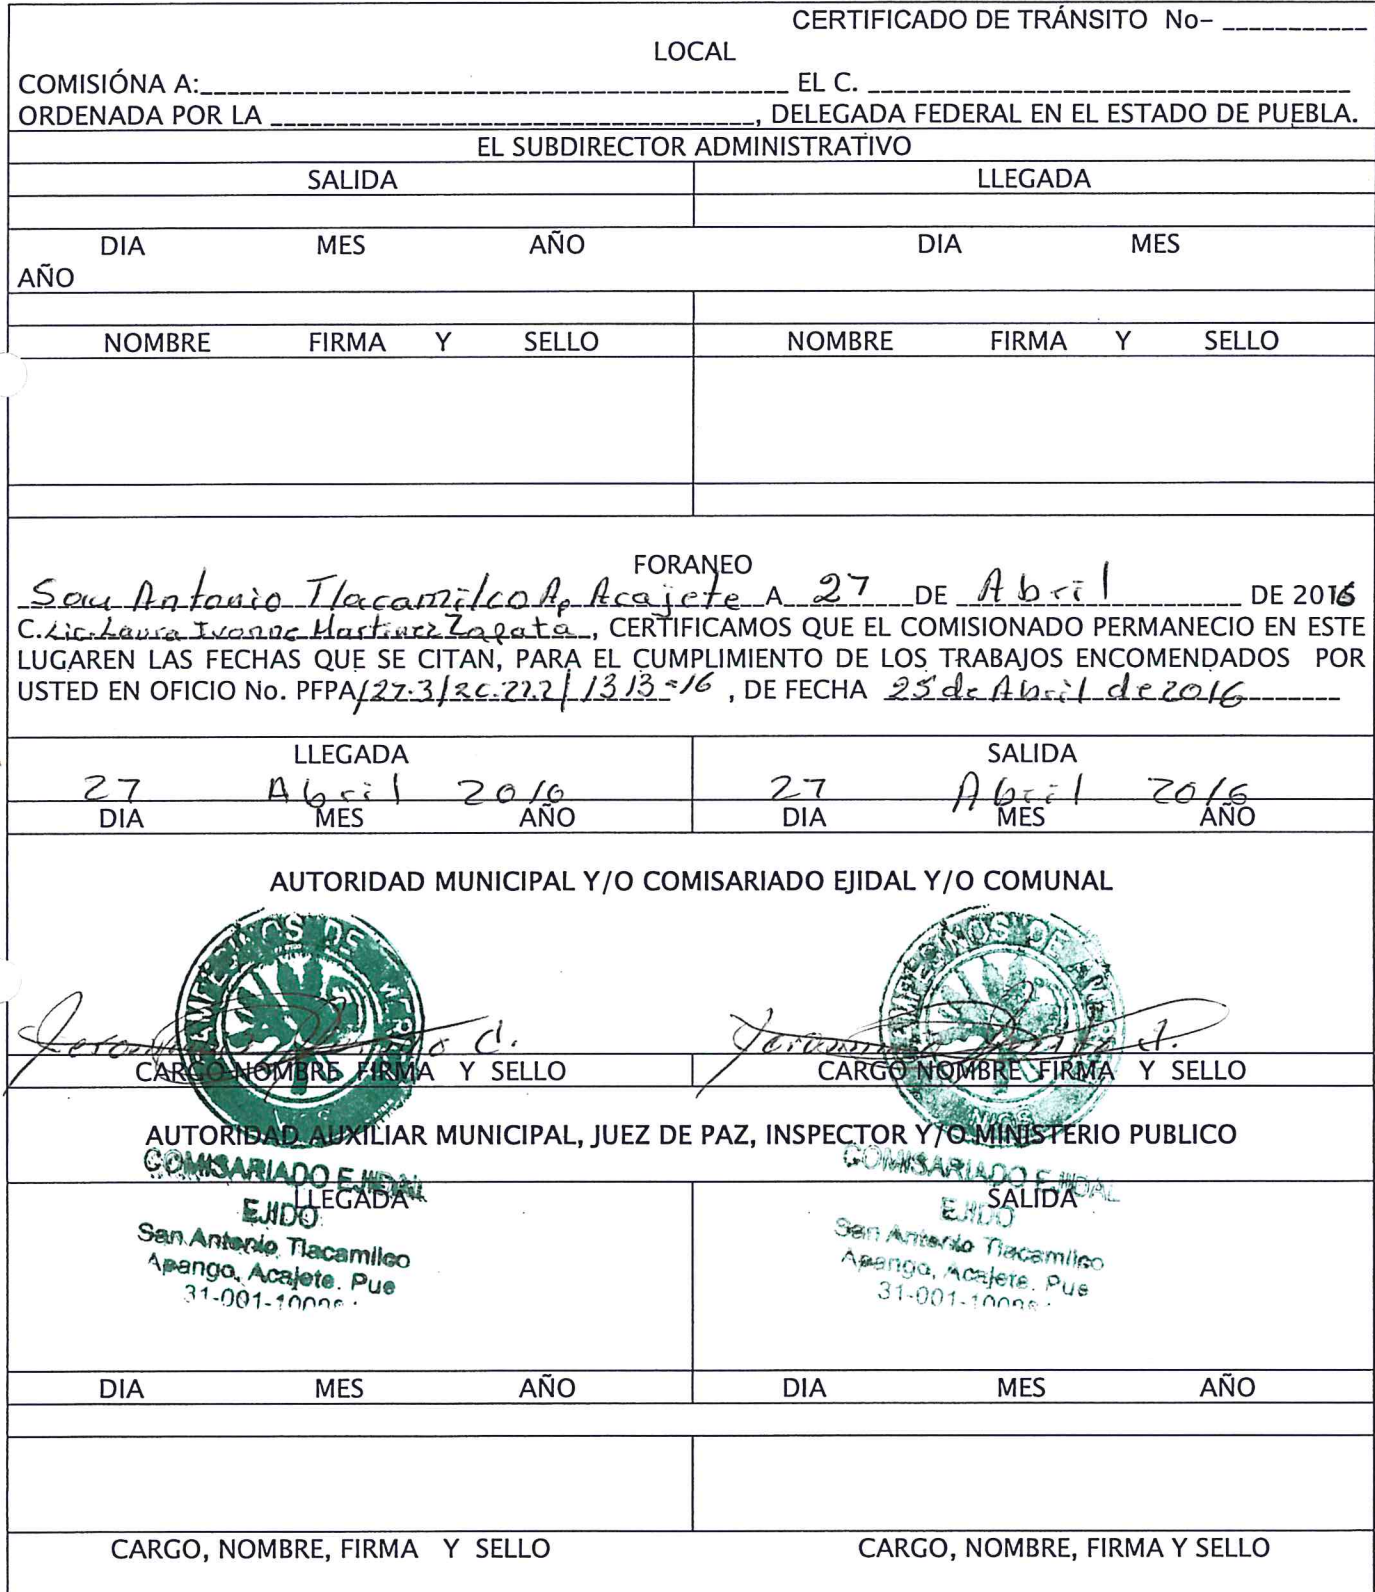 CERTIFICADO DE TRÁNSITO No– ___________
LOCAL
COMISIÓNA A:______________________________________________ EL C. ______________________________________
ORDENADA POR LA ______________________________________, DELEGADA FEDERAL EN EL ESTADO DE PUEBLA.
EL SUBDIRECTOR ADMINISTRATIVO
SALIDA LLEGADA
DIA MES AÑO DIA MES
AÑO
NOMBRE FIRMA Y SELLO NOMBRE FIRMA Y SELLO
FORANEO
San Antonio Tlacamilco Ap Acajete A 27 DE Abril DE 2016
C. Lic. Laura Ivonne Martinez Zapata, CERTIFICAMOS QUE EL COMISIONADO PERMANECIO EN ESTE
LUGAREN LAS FECHAS QUE SE CITAN, PARA EL CUMPLIMIENTO DE LOS TRABAJOS ENCOMENDADOS POR
USTED EN OFICIO No. PFPA/27.3/2C.27.2/1313-16 , DE FECHA 25 de Abril de 2016
LLEGADA SALIDA
27 Abril 2016 27 Abril 2016
DIA MES AÑO DIA MES AÑO
AUTORIDAD MUNICIPAL Y/O COMISARIADO EJIDAL Y/O COMUNAL
CARGO NOMBRE FIRMA Y SELLO CARGO NOMBRE FIRMA Y SELLO
AUTORIDAD AUXILIAR MUNICIPAL, JUEZ DE PAZ, INSPECTOR Y/O MINISTERIO PUBLICO
COMISARIADO EJIDAL COMISARIADO EJIDAL
LLEGADA SALIDA
EJIDO EJIDO
San Antonio Tlacamilco San Antonio Tlacamilco
Apango, Acajete. Pue Apango, Acajete. Pue
DIA MES AÑO DIA MES AÑO
CARGO, NOMBRE, FIRMA Y SELLO CARGO, NOMBRE, FIRMA Y SELLO